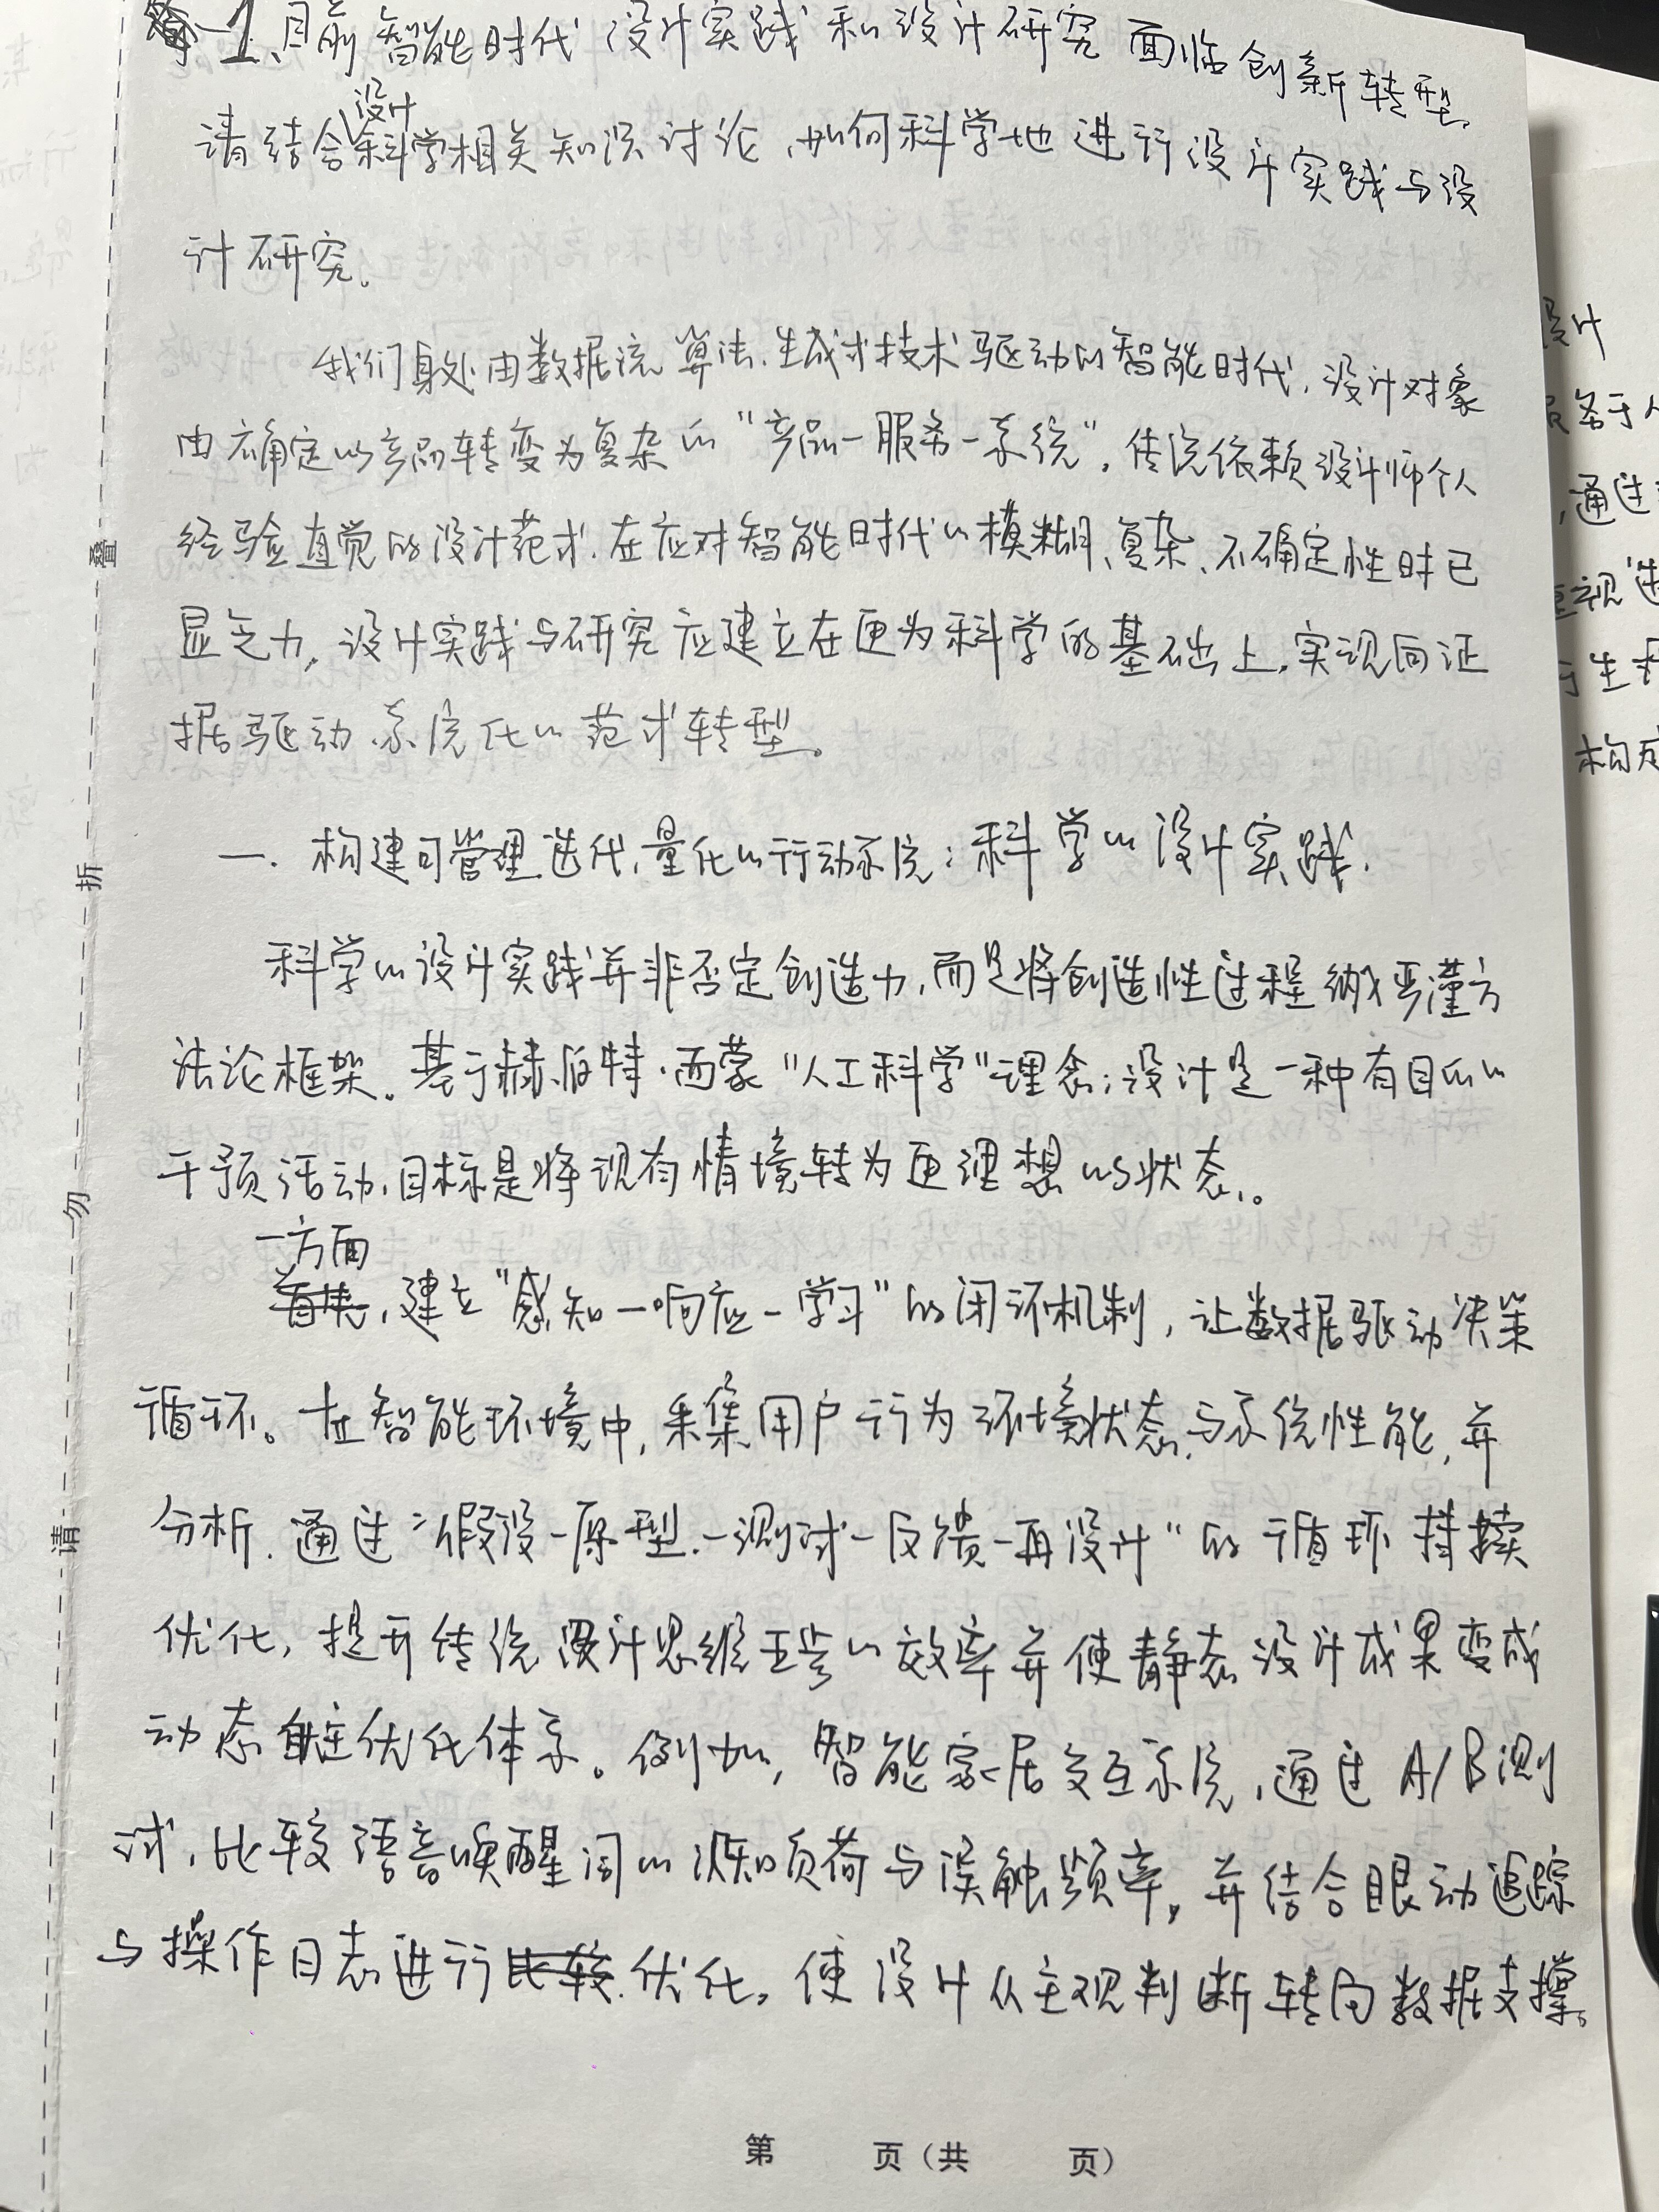 1、目前智能时代设计实践和设计研究面临创新转型,
请结合设计科学相关知识讨论,如何科学地进行设计实践与设
计研究。
我们身处由数据流、算法、生成式技术驱动的智能时代,设计对象
由确定的产品转变为复杂的“产品—服务—系统”,传统依赖设计师个人
经验直觉的设计范式,在应对智能时代的模糊、复杂、不确定性时已
显乏力,设计实践与研究应建立在更为科学的基础上,实现向证
据驱动、系统化的范式转型。
一.构建可管理迭代、量化的行动系统:科学的设计实践.
科学的设计实践并非否定创造力,而是将创造性过程纳入严谨方
法论框架。基于赫伯特·西蒙“人工科学”理念:设计是一种有目的的
干预活动,目标是将现有情境转为更理想的状态。
一方面,建立“感知—响应—学习”的闭环机制,让数据驱动决策
循环。在智能环境中,采集用户行为、环境状态与系统性能,并
分析.通过“假设—原型—测试—反馈—再设计”的循环持续
优化,提升传统设计思维五步的效率并使静态设计成果变成
动态自主优化体系。例如,智能家居交互系统,通过A/B测
试,比较语音唤醒词的认知负荷与误触频率,并结合眼动追踪
与操作日志进行优化,使设计从主观判断转向数据支撑。
第 页(共 页)
请 勿 折 叠
设计
服务于人
,通过
重视
构成